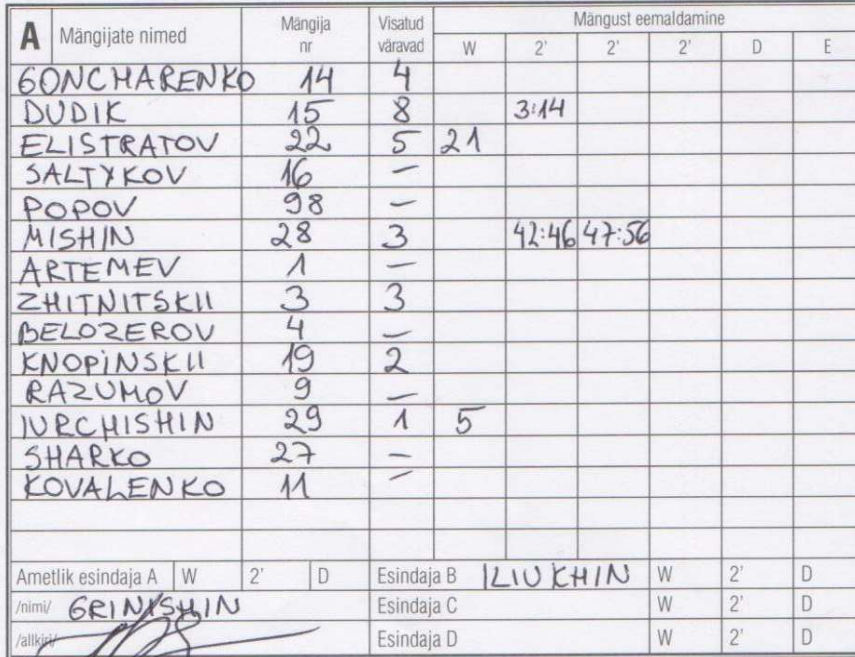 A Mängijate nimed Mängija nr Visatud väravad Mängust eemaldamine
W 2' 2' 2' D E
GONCHARENKO 14 4
DUDIK 15 8 3:14
ELISTRATOV 22 5 21
SALTYKOV 16 –
POPOV 98 –
MISHIN 28 3 42:46 47:56
ARTEMEV 1 –
ZHITNITSKII 3 3
BELOZEROV 4 –
KNOPINSKII 19 2
RAZUMOV 9 –
IURCHISHIN 29 1 5
SHARKO 27 –
KOVALENKO 11 –
Ametlik esindaja A W 2' D Esindaja B ILIUKHIN W 2' D
/nimi/ GRINISHIN Esindaja C W 2' D
/allkiri/ Esindaja D W 2' D